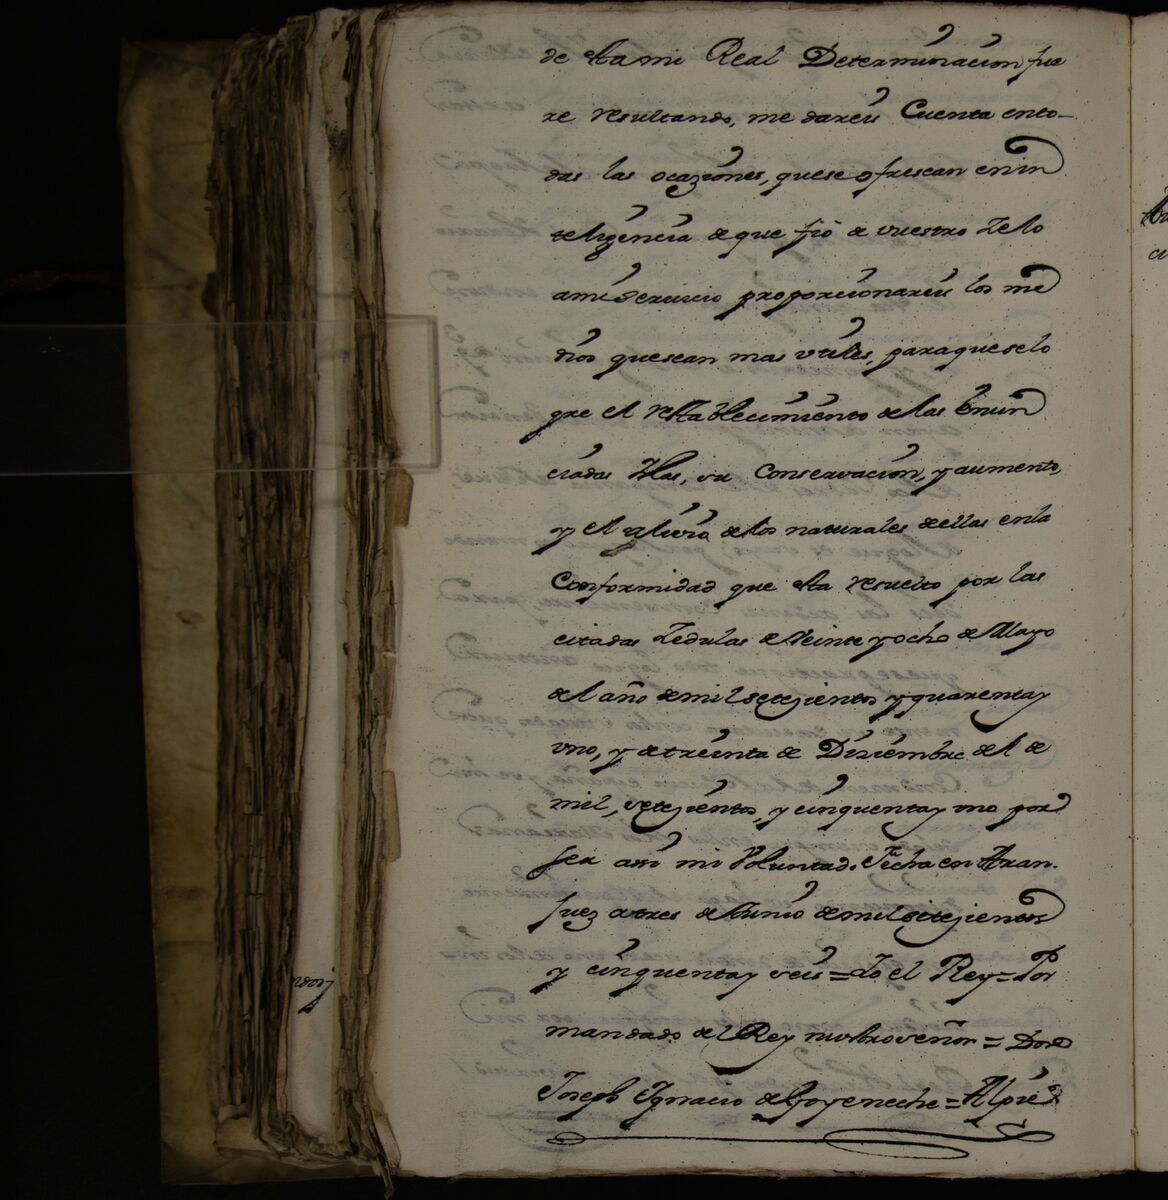 de Esta mi Real Determinacion fue
re resultando, me dareis Cuenta ento-
das las ocaziones, quese ofrescan en in
teligencia de que fio de vuestro Zelo
ami Servicio proporcionareis los me
dios quesean mas utiles, paraqueselo
gre el restablecimiento de las Enun
ciadas Islas, su Conservacion, y aumento,
y el alivio delos naturales dellas enla
Conformidad que esta resuelto por las
citadas Zedulas de Veinte y ocho de Mayo
del año de mil setezientos y quarentay
uno, y de treinta de Diziembre del de
mil, setezientos, y cinquentay uno por
ser assi mi Voluntad. Fecha en Aran-
juez a tres de Junio de mil setezientos
y cinquentay seis = Yo el Rey = Por
mandado del Rey nuestro señor = Don
Joseph Ignacio de Goyeneche = Al pie